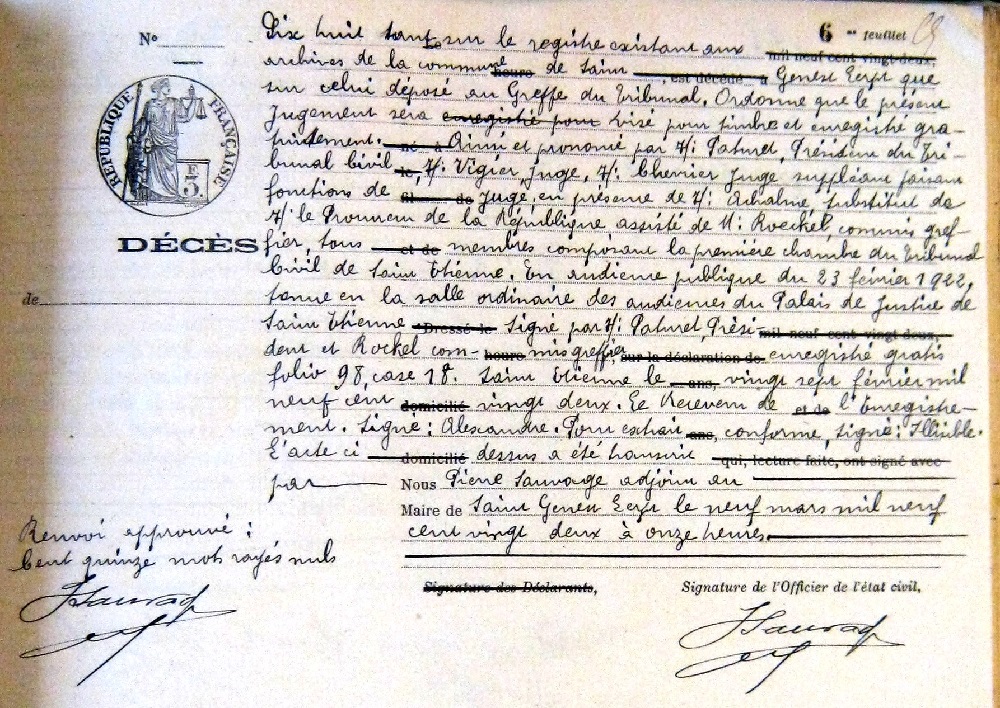 N° 6 me feuillet
Dix huit tant sur le registre existant aux mil neuf cent vingt-deux,
archives de la commune heure de Saint , est décédé à Genest Lerpt que
sur celui déposé au Greffe du Tribunal. Ordonne que le présent
Jugement sera enregistré pour visé pour timbre et enregistré gra-
tuitement. né à Ainsi et prononcé par M: Paturel, Président du Tri-
bunal Civil le, M: Vigier, Juge, M: Chevrier Juge suppléant faisant
fonctions de fil de Juge, en présence de M: Achalme, substitut de
M: le Procureur de la République, assisté de M: Roeckel, commis gref-
fier, tous et de membres composant la première chambre du Tribunal
Civil de Saint Etienne. En audience publique du 23 février 1922,
tenue en la salle ordinaire des audiences du Palais de Justice de
Saint Etienne Dressé le Signé par M: Paturel, Prési- mil neuf cent vingt-deux,
dent et Rockel com- heure mis greffier sur la déclaration de enregistré gratis
folio 98, case 18. Saint Etienne le ans, vingt sept février mil
neuf cent domicilié vingt deux. Le Receveur de et de l'Enregistre-
ment. Signé: Alexandre. Pour extrait ans, conforme, signé: Illisible.
L'acte ci domicilié dessus a été transcrit qui, lecture faite, ont signé avec
par Nous Pierre Sauvage adjoint au
Maire de Saint Genest Lerpt le neuf mars mil neuf
cent vingt deux à onze heures.
RÉPUBLIQUE FRANÇAISE
DÉCÈS
de
Renvoi approuvé:
Cent quinze mots rayés nuls
Signature des Déclarants,
Signature de l'Officier de l'état civil,